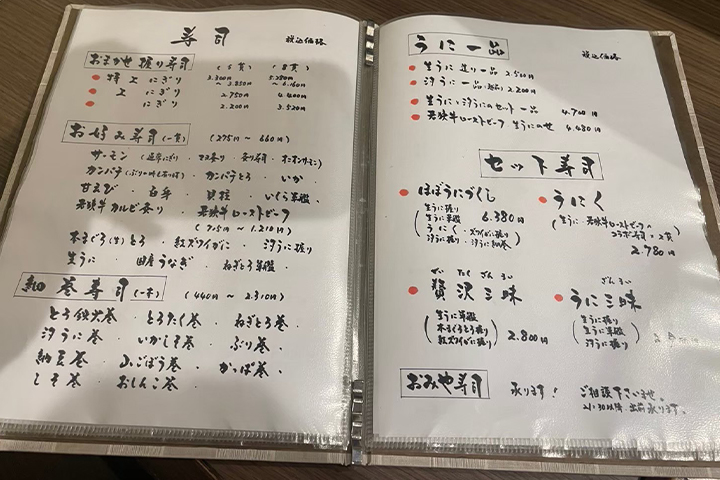 寿司 税込価格
おまかせ握り寿司 (5貫) (8貫)
特上にぎり 3.300円～3.850円 5.280円～6.160円
上にぎり 2.750円 4.400円
にぎり 2.200円 3.520円
お好み寿司(一貫) (275円～660円)
サーモン
カンパチ カンパチとろ・いか
甘えび・白身・貝柱・いくら軍艦
若狭牛カルビ炙り・若狭牛ローストビーフ
(715円～1.210円)
本まぐろ(生)とろ・紅ズワイがに・汐うに握り
生うに・国産うなぎ・ねぎとろ軍艦・
細巻寿司(一本) (440円～2.310円)
とろ鉄火巻・とろたく巻・ねぎとろ巻・
汐うに巻・いかしそ巻・ぶり巻・
納豆巻・山ごぼう巻・かっぱ巻・
しそ巻・おしんこ巻・
うに一品 税込価格
生うに造り一品 2.500円
汐うに一品 2.200円
生うに・汐うにのセット一品 4.700円
若狭牛ローストビーフ生うにのせ 4.480円
セット寿司
ほぼうにづくし
生うに握り
生うに軍艦
うにく・ズワイがに握り
汐うに握り・汐うに細巻
6.380円
うにく
生うに・若狭牛ローストビーフの
コラボ寿司・2貫
2.780円
ぜい たく ざん まい
贅沢三昧
生うに軍艦
本まぐろとろ握り
紅ズワイがに握り
2.800円
ざん まい
うに三昧
生うに握り
生うに軍艦
汐うに握り
おみや寿司 承ります! ご相談下さいませ。
21:30以降 出前承ります。